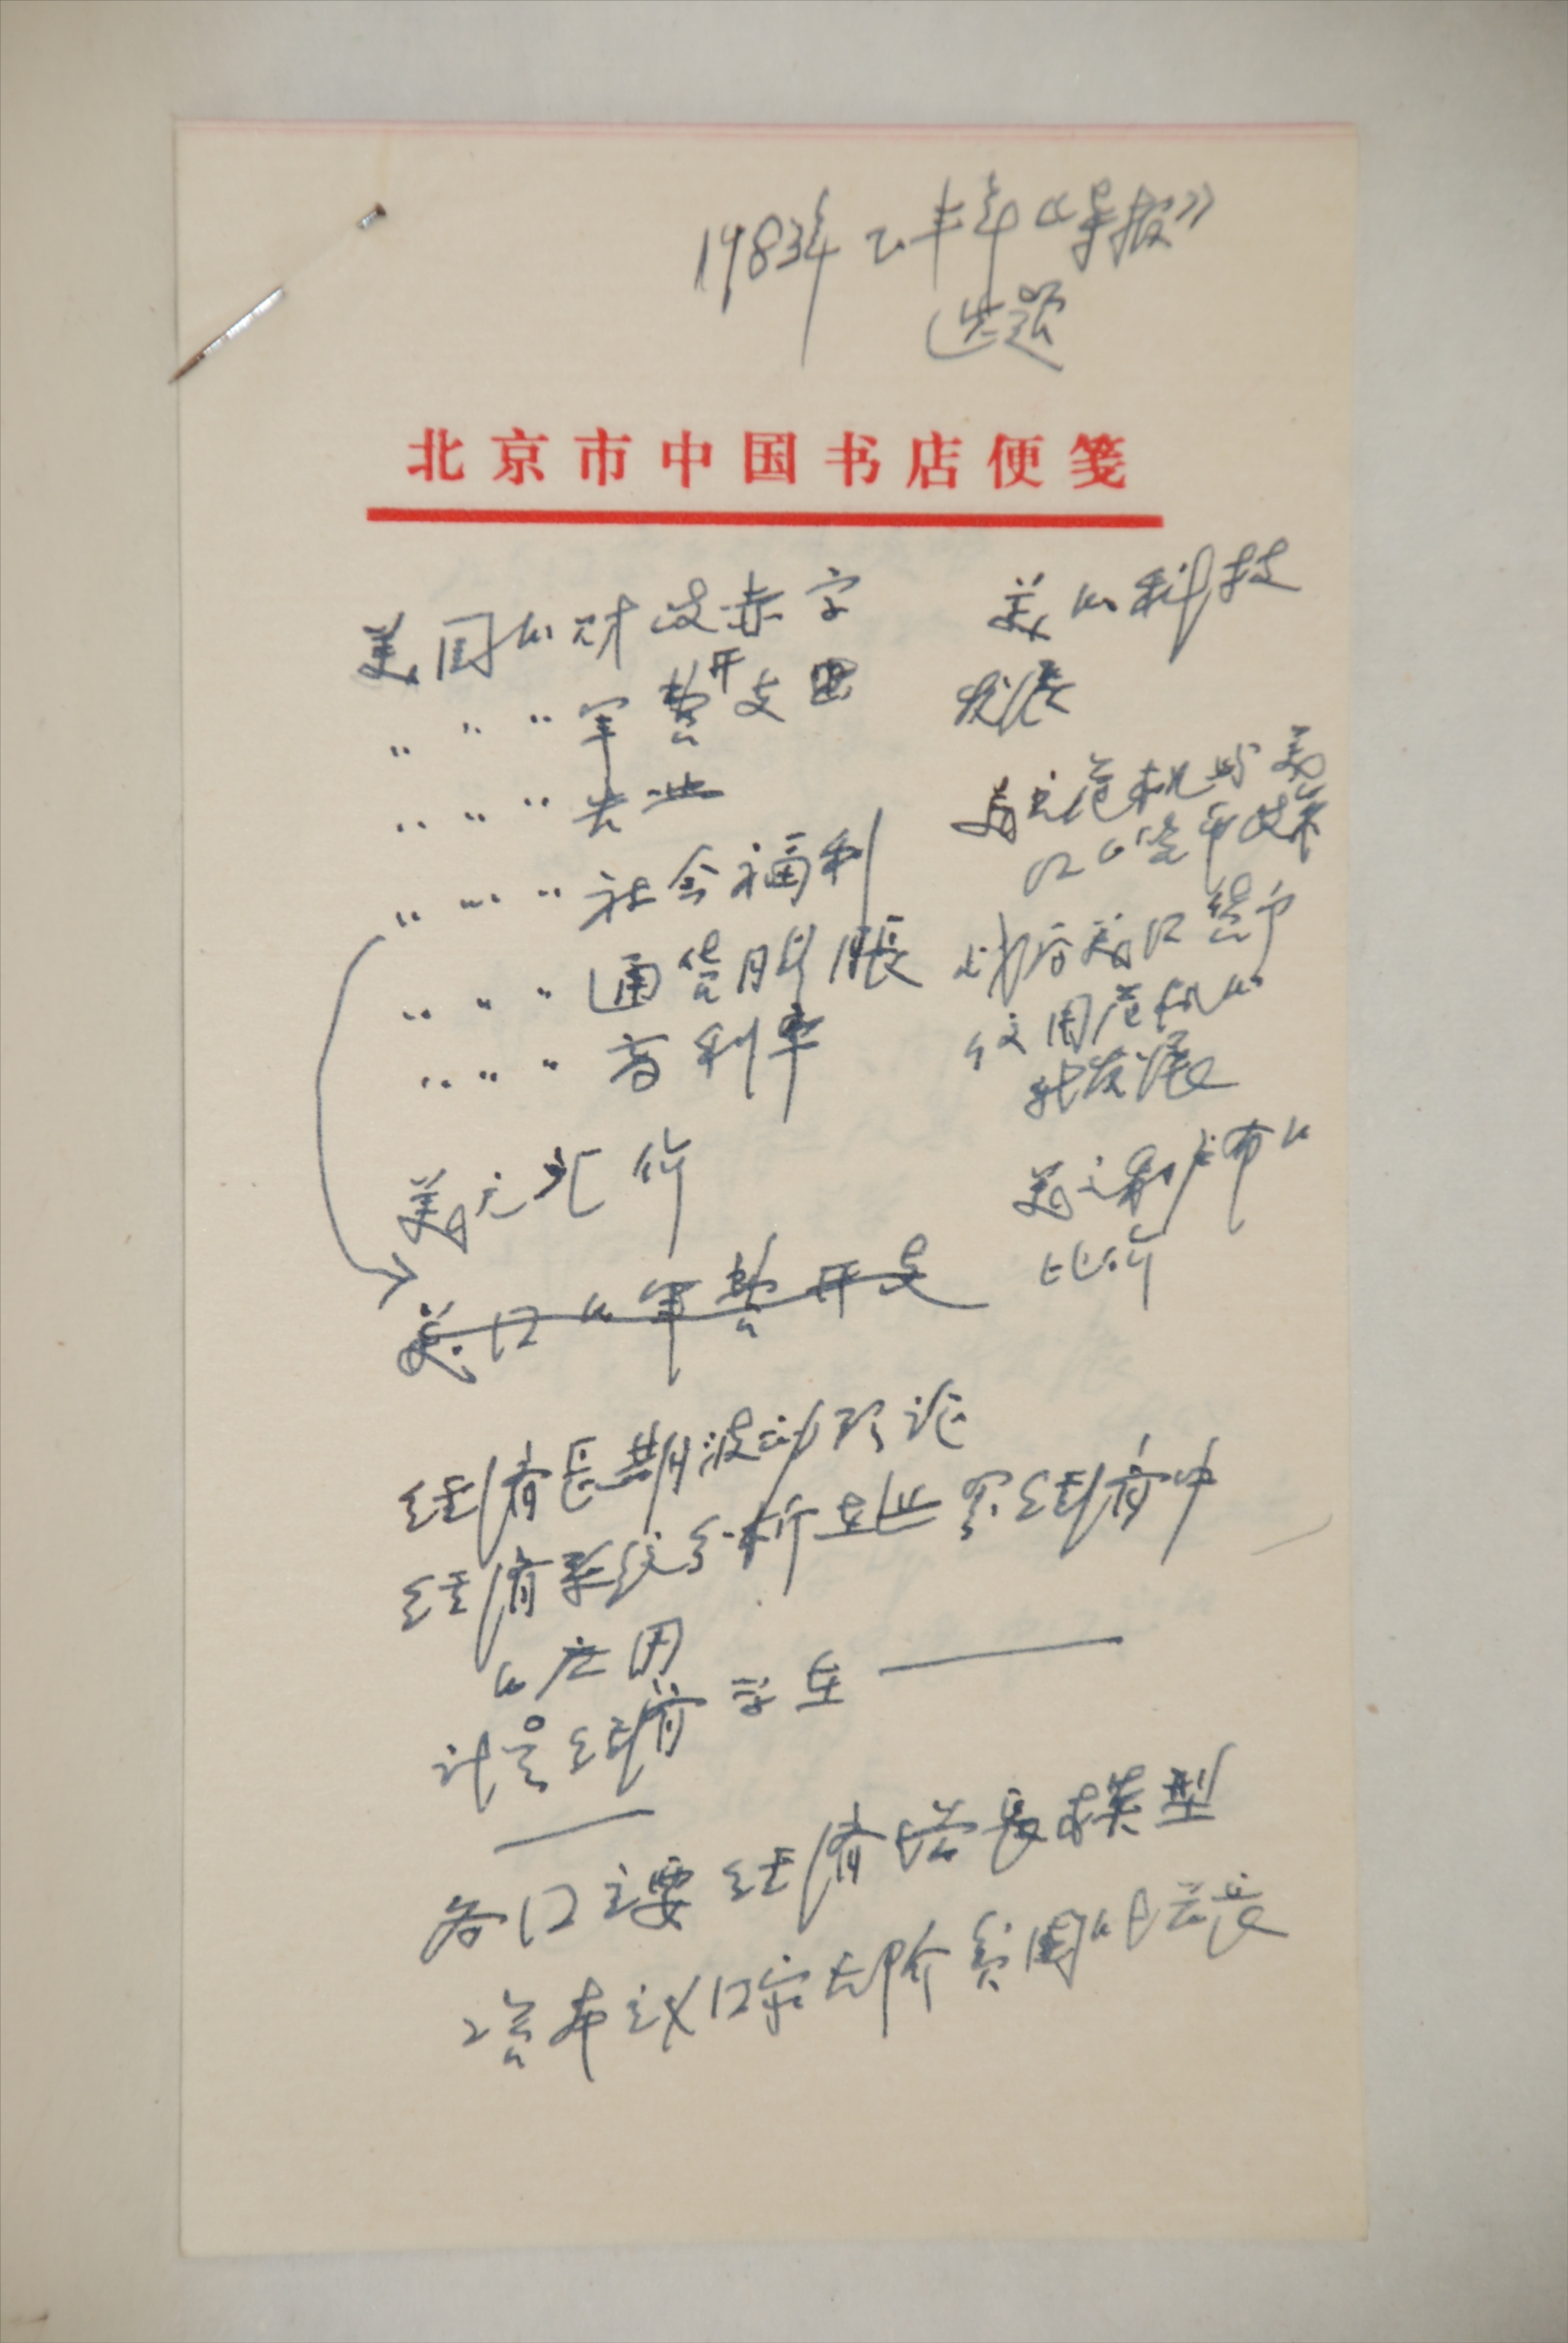 1983年上半年《导报》
选题
北京市中国书店便笺
美国的财政赤字
〃 〃 〃 军费开支
〃 〃 〃 失业
〃 〃 〃 社会福利
〃 〃 〃 通货膨胀
〃 〃 〃 高利率
美元汇价
美国的军费开支
经济长期波动理论
经济系统分析在世界经济中
的应用
计量经济学在——
——
各国主要经济增长模型
资本主义国家大阶集团的
美的科技
发展
美元危机与美
国的货币政策
战后美国货币
信用危机的
新发展
美元和卢布的
比价